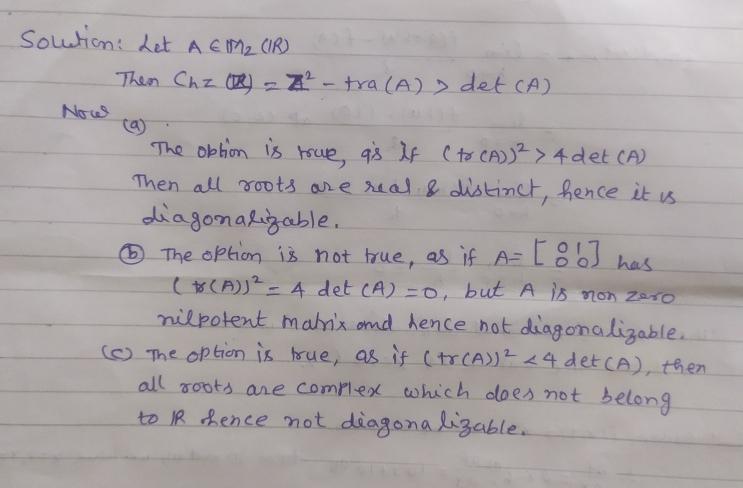 Solution: Let A ∈ M2 (IR)
Then Ch = x² - tra(A) > det (A)
Now
(a)
The option is true, as If (tr(A))² > 4 det (A)
Then all roots are real & distinct, hence it is
diagonalizable.
(b) The option is not true, as if A = [0 1 / 0 0] has
(tr(A))² = 4 det (A) = 0, but A is non zero
nilpotent matrix and hence not diagonalizable.
(c) The option is true, as if (tr(A))² < 4 det (A), then
all roots are complex which does not belong
to IR hence not diagonalizable.